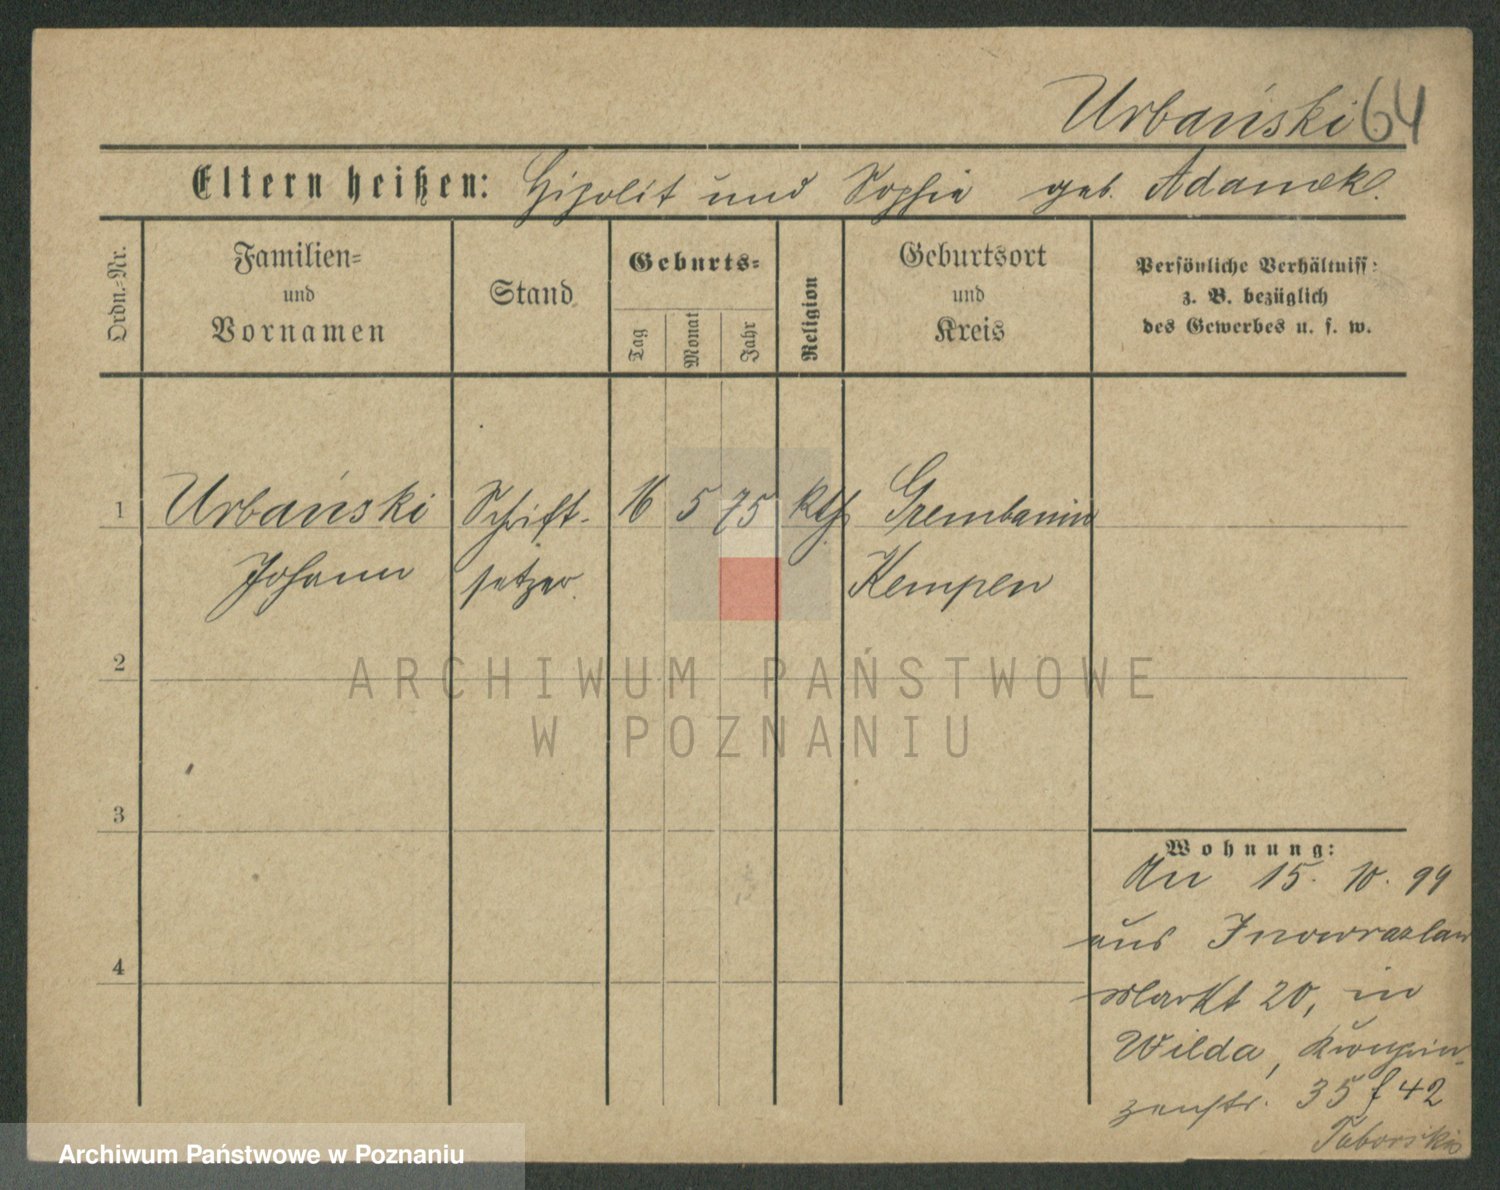 Urbański 64
Eltern heißen: Hipolit und Sophie geb. Adamek.
Ordn.-Nr.
Familien- und Vornamen
Stand
Geburts-
Tag
Monat
Jahr
Religion
Geburtsort und Kreis
Persönliche Verhältniss:
z. B. bezüglich
des Gewerbes u. s. w.
1 Urbański Schrift- 16 5 75 kth Grembanin
Johann setzer. Kempen
2
ARCHIWUM PAŃSTWOWE
W POZNANIU
3
Wohnung:
An 15. 10. 99
aus Inowrazlaw
4
Markt 20, in
Wilda, Kronprin-
zenstr. 35 f 42
Taborski
Archiwum Państwowe w Poznaniu